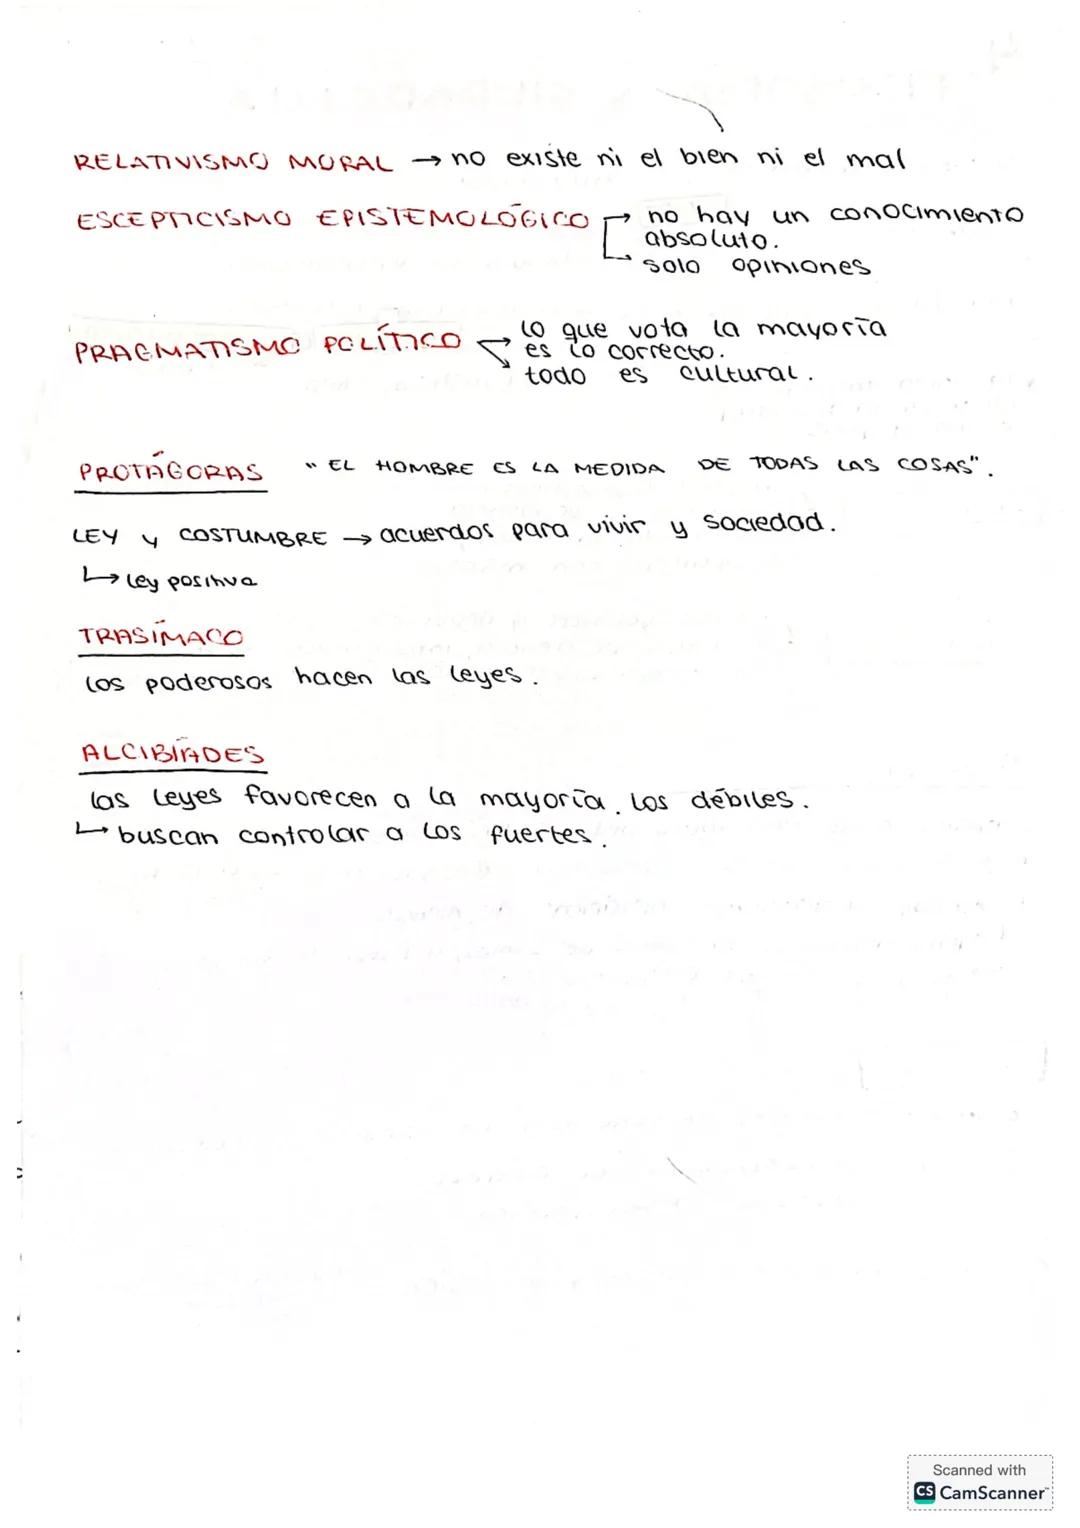 RELATIVISMO MORAL → no existe ni el bien ni el mal
ESCEPTICISMO EPISTEMOLÓGICO → no hay un conocimiento
absoluto.
→ solo opiniones
PRAGMATISMO POLÍTICO → lo que vota la mayoría
es lo correcto.
→ todo es cultural.
PROTÁGORAS "EL HOMBRE ES LA MEDIDA DE TODAS LAS COSAS".
LEY y COSTUMBRE → acuerdos para vivir y sociedad.
↳ ley positiva
TRASÍMACO
los poderosos hacen las leyes.
ALCIBÍADES
las leyes favorecen a la mayoría. los débiles.
↳ buscan controlar a los fuertes.
Scanned with
CS CamScanner